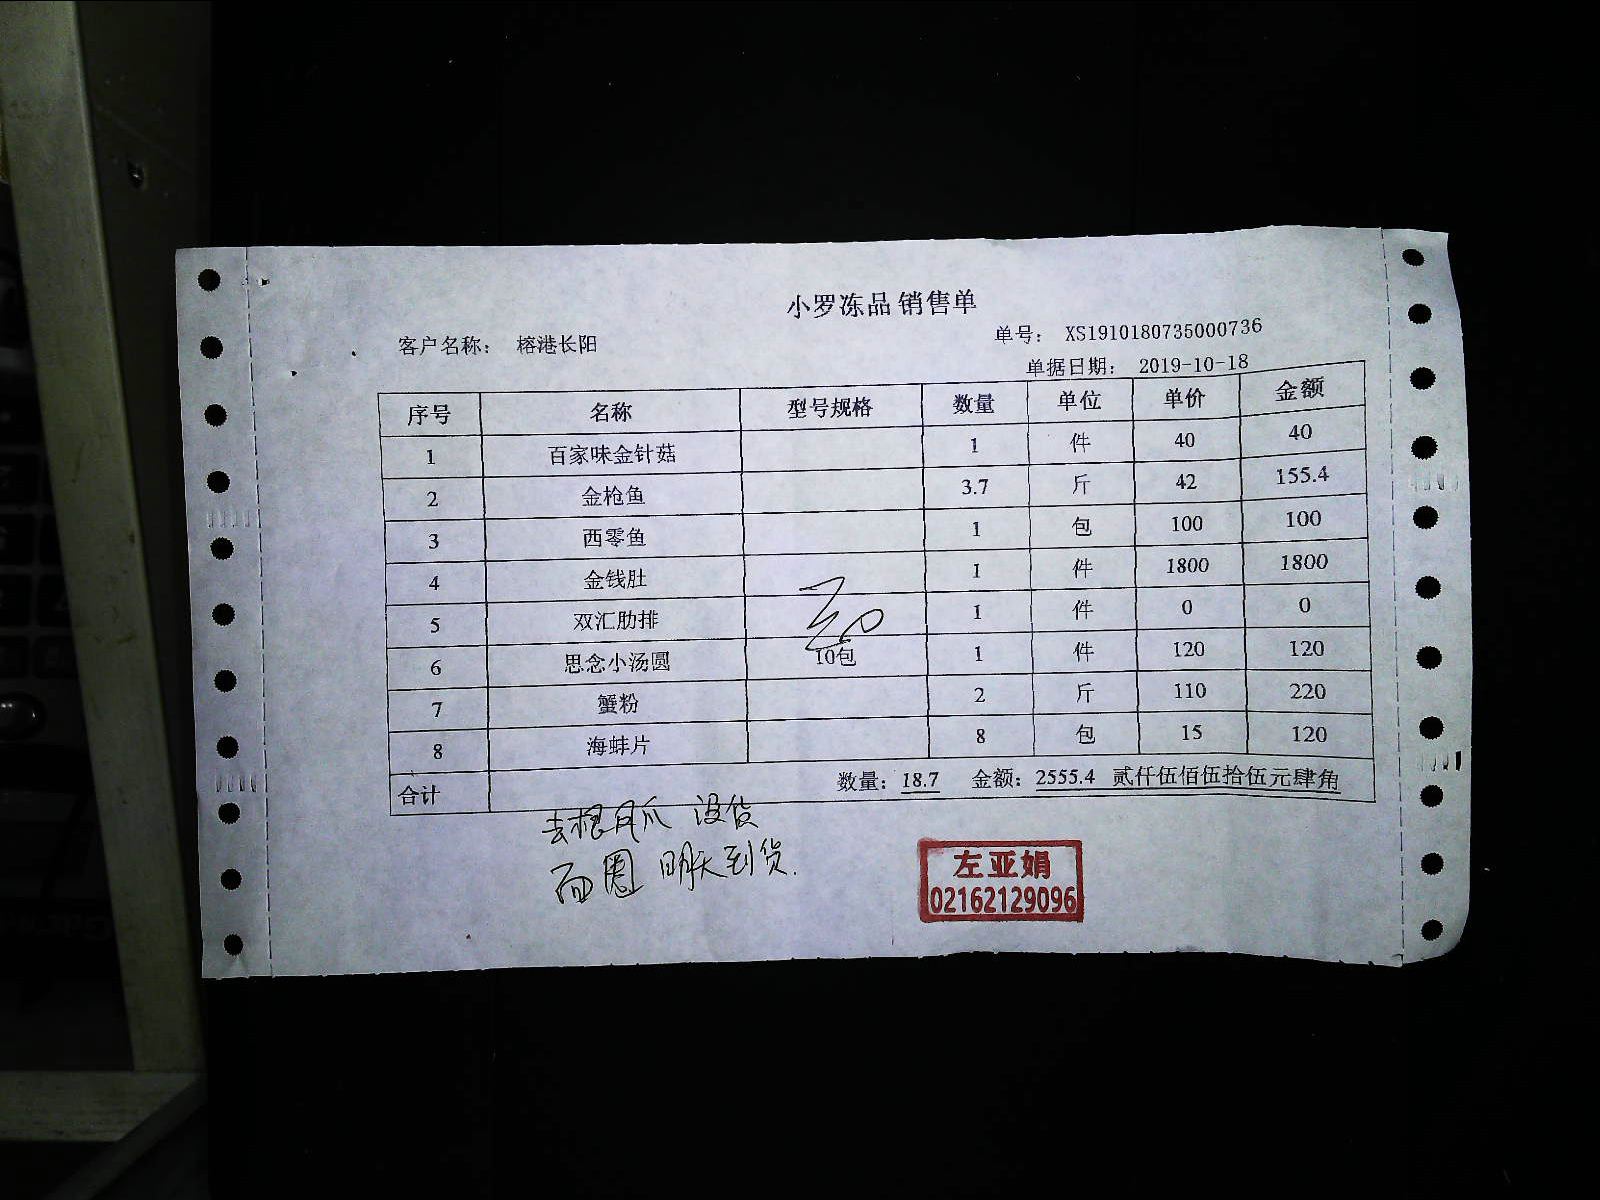 小罗冻品 销售单
客户名称： 榕港长阳 单号： XS1910180735000736
单据日期： 2019-10-18
序号 名称 型号规格 数量 单位 单价 金额
1 百家味金针菇 1 件 40 40
2 金枪鱼 3.7 斤 42 155.4
3 西零鱼 1 包 100 100
4 金钱肚 1 件 1800 1800
5 双汇肋排 1 件 0 0
6 思念小汤圆 10包 1 件 120 120
7 蟹粉 2 斤 110 220
8 海蚌片 8 包 15 120
合计 数量：18.7 金额：2555.4 贰仟伍佰伍拾伍元肆角
去根 爪 没货
面圈 明天到货.
左亚娟
02162129096